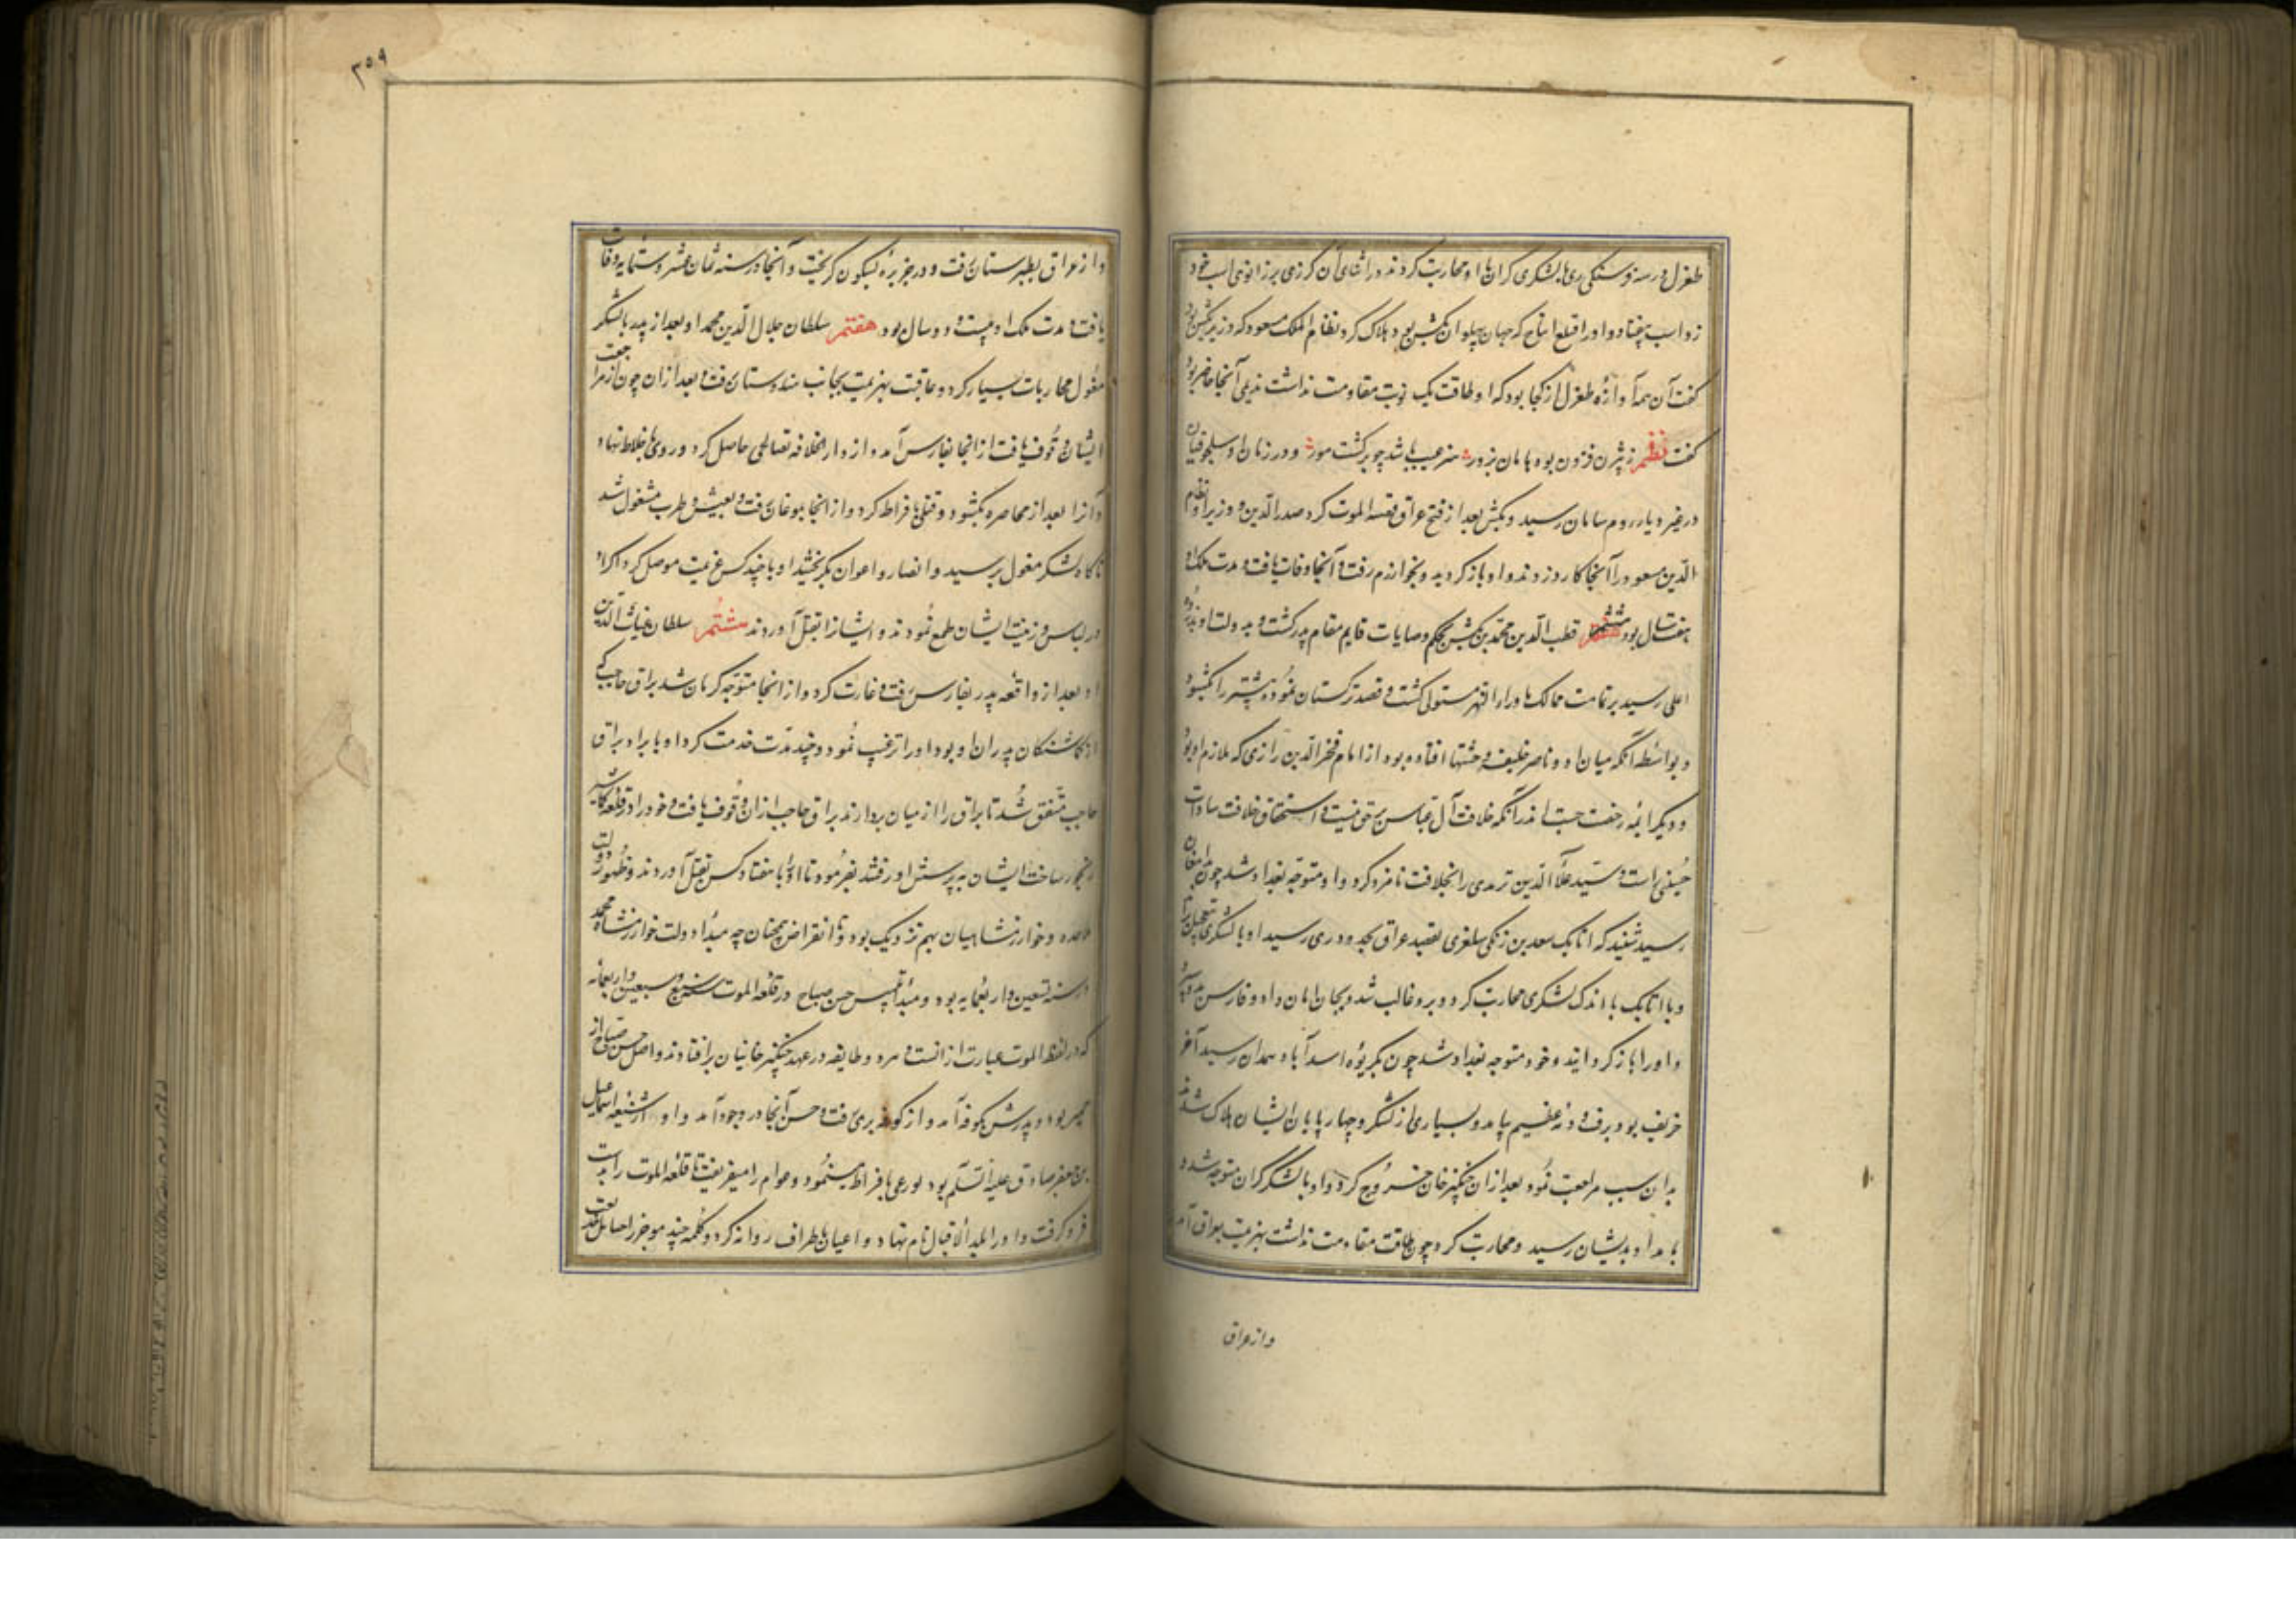 طغرل در سه فرسنگی ری با لشکری گران با او محاربت کردند و در اثنای آن گرزی بر زانوی اسب خود
زد اسب بیفتاد و او را قتلغ اینانج که جهان پهلوان تکش بود هلاک کرد نظام الملک مسعود که وزیر تکش بود
گفت آن همه آوازه طغرل از کجا بود که او طاقت یک نوبت مقاومت نداشت ندیمی آنجا حاضر بود
گفت نظم ز بیژن فزون بود هامان بزور هنر عیب باشد چو برگشت هور و در زمان او سلجوقیان
در غیر دیار روم سامان رسید و تکش بعد از فتح عراق قصد الموت کرد صدر الدین و وزیر او نظام
الدین مسعود را آنجا کارد زدند و او باز گردید و بخوارزم رفت و آنجا وفات یافت و مدت ملک او
هفت سال بود ششم قطب الدین محمد بن تکش بحکم وصایات قایم مقام پدر گشت و دولت او بذروه
اعلی رسید بر تمامت ممالک ماوراء النهر مستولی گشت و قصد ترکستان نمود و بیشتر را بگشود
و بواسطه آنکه میان او و ناصر خلیفه وحشتها افتاده بود از امام فخر الدین رازی که ملازم او بود
و دیگر ائمه رخصت جست اندر آنکه خلافت آل عباس بحق نیست و استحقاق خلافت سادات
حسینی راست و سید علاء الدین ترمدی را بخلافت نامزد کرد و او متوجه بغداد شد چون بدامغان
رسید شنید که اتابک سعد بن زنگی سلغری بقصد عراق بحدود ری رسید او با لشکری بتعجیل براند
و با اتابک با اندک لشکری محاربت کرد و برو غالب شد و بجان امان داد و فارس بدو سپرد
و او را باز گردانید و خود متوجه بغداد شد چون بکریوه اسدآباد همدان رسید آخر
خریف بود برف و دمه عظیم بیامد و بسیاری از لشکر و چهارپایان ایشان هلاک شدند
بدان سبب مراجعت نمود بعد از آن چنگیز خان خروج کرد و او با لشکر گران متوجه شد و
بامداد بدیشان رسید و محاربت کرد چون طاقت مقاومت نداشت بهزیمت بعراق آمد
و از عراق
۳۵۹
و از عراق بطبرستان رفت و در جزیره آبسکون گریخت و آنجا در سنه ثمان عشر و ستمایه وفات
یافت و مدت ملک او بیست و دو سال بود هفتم سلطان جلال الدین محمد او بعد از پدر با لشکر
مغول محاربات بسیار کرد و عاقبت بهزیمت بجانب هندوستان رفت و بعد از آن چون از مراجعت
ایشان وقوف یافت از آنجا بفارس آمد و از دار الخلافه تعالی حاصل کرد و روی بخلاط نهاد
و آنرا بعد از محاصره بگشود و قتلی بافراط کرد و از آنجا بموغان رفت و بعیش و طرب مشغول شد
ناگاه لشکر مغول برسید و انصار و اعوان بگریختند او با چند کس عزیمت موصل کرد اکراد
در لباس و زینت ایشان طمع نمودند و ایشانرا بقتل آوردند هشتم سلطان غیاث الدین
او بعد از واقعه پدر بفارس رفت و غارت کرد و از آنجا متوجه کرمان شد براق حاجب که
از گماشتگان پدران او بود او را ترغیب نمود و چند مدت خدمت کرد او با برادر براق
حاجب متفق شد تا براق را از میان بردارند براق حاجب از آن وقوف یافت و خود را در قلعه کاشیر
رنجور ساخت ایشان به پرسش او رفتند بفرمود تا او را با هفتاد کس بقتل آوردند و ظهور دولت
ملاحده و خوارزمشاهیان بهم نزدیک بود و تا انقراض همچنان چه مبداء دولت خوارزمشاه محمد
در سنه تسعین و اربعمایه بود و مبداء تلبیس حسن صباح در قلعه الموت سنه سبع و سبعین و اربعمایه
که در لفظ الموت عبارت از آنست و هر دو طایفه در عهد چنگیز خانیان برافتادند و اصل حسن صباح از
حمیر بود و پدرش بکوفه آمد و از کوفه بری رفت و حسن آنجا در وجود آمد و او از شیعه اسمعیل
بن جعفر صادق علیه السلم بود ورعی بافراط مینمود و عوام را میفریفت تا قلعه الموت را بدست
فرو گرفت و او را بلدة الاقبال نام نهاد و داعیان باطراف روانه کرد و کلمه چند موجز را